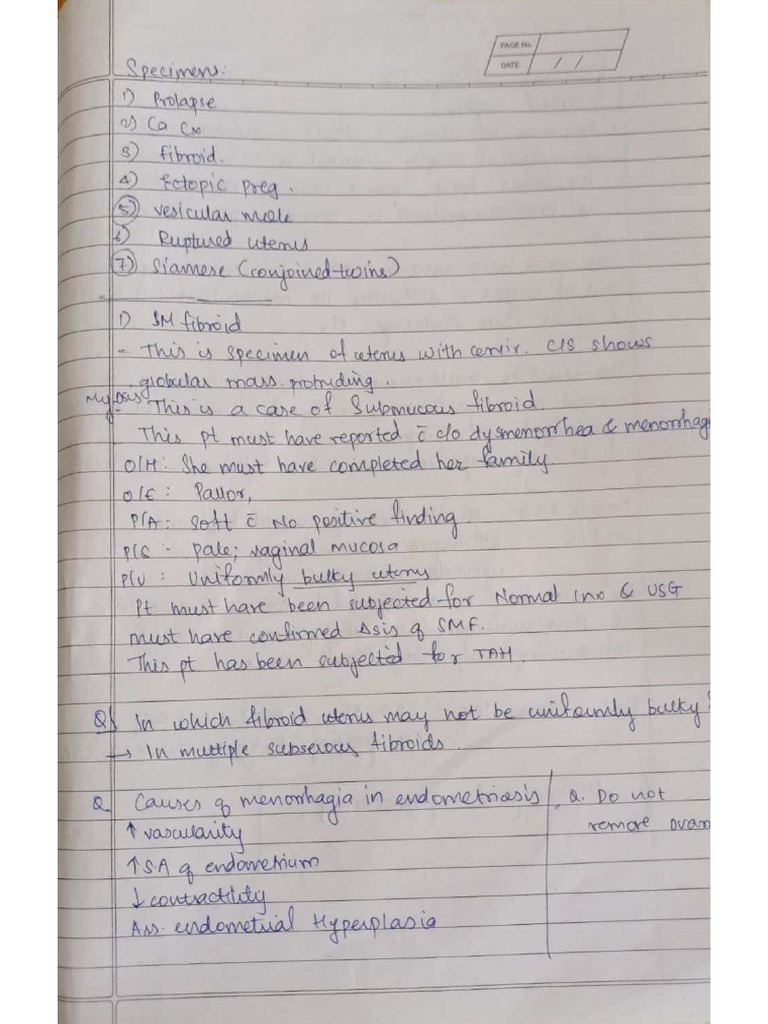 PAGE NO.
DATE / /
Specimens:
1) Prolapse
2) Ca Cx
3) fibroid.
4) Ectopic preg.
5) vesicular mole
6) Ruptured uterus
7) Siamese (conjoined-twins)
1) SM fibroid
- This is specimen of uterus with cervix. C/S shows
globular mass protruding.
My Dsis This is a case of Submucous fibroid.
This pt must have reported c̄ c/o dysmenorrhea & menorrhag
O/H: She must have completed her family.
O/E: Pallor,
P/A: Soft c̄ No positive finding.
P/S - pale; vaginal mucosa
P/V: Uniformly bulky uterus
Pt must have been subjected for Normal Inx & USG
must have confirmed Δsis of SMF.
This pt has been subjected for TAH.
Q) In which fibroid uterus may not be uniformly bulky?
→ In multiple subserous fibroids.
Q Causes of menorrhagia in endometriosis
↑ vascularity
↑ S.A of endometrium
↓ contractility
Ass. endometrial Hyperplasia
Q. Do not
remove ovar